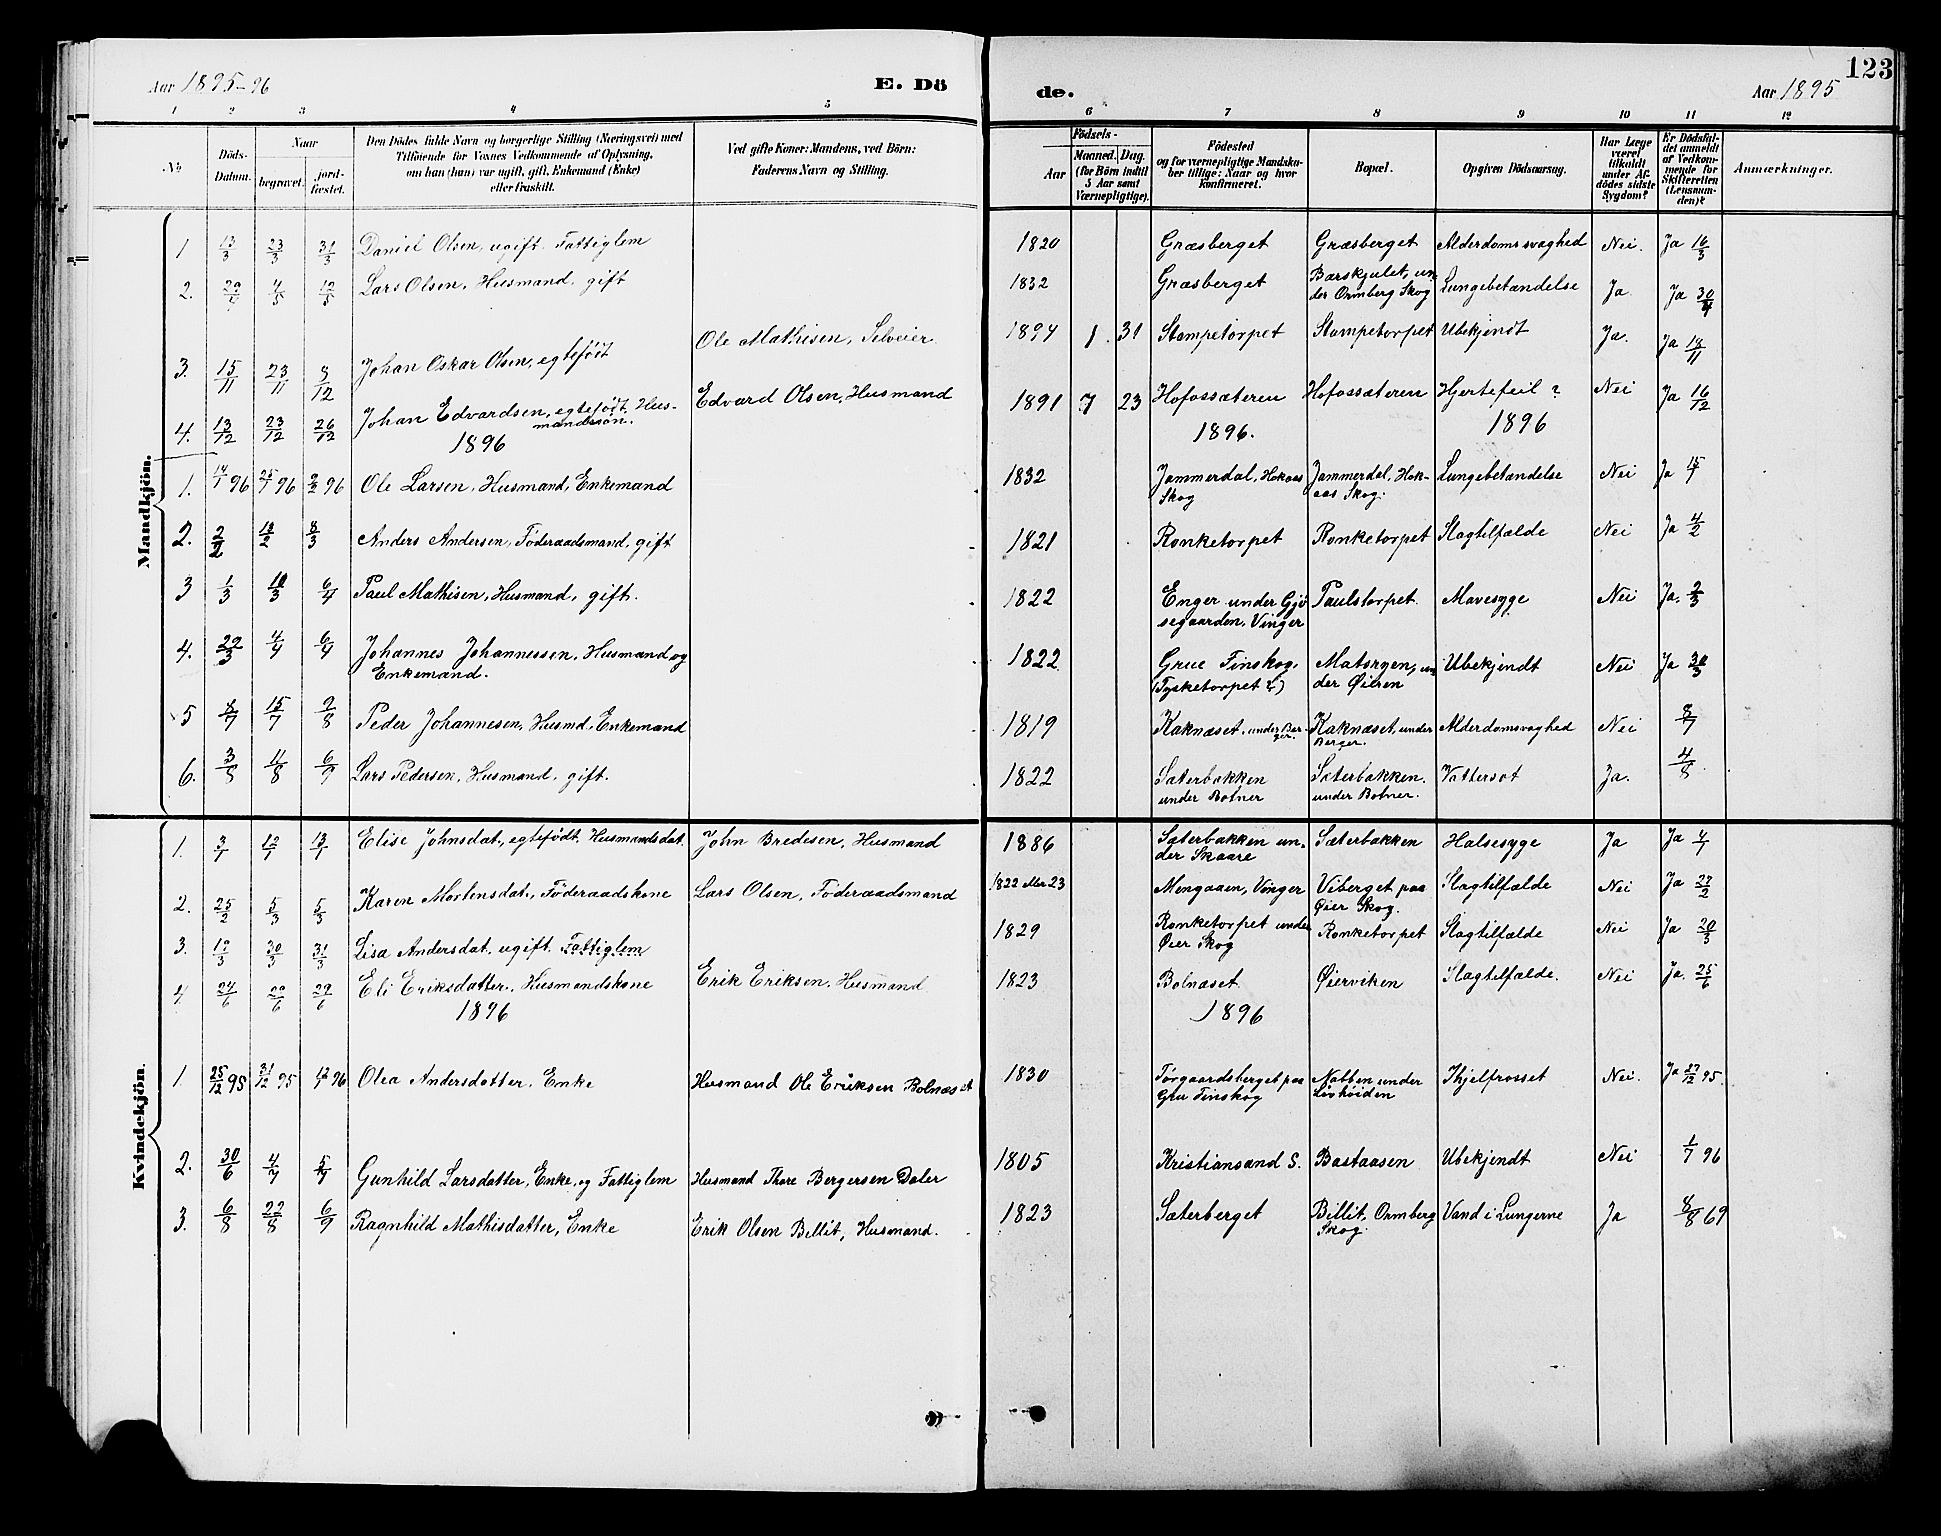 Aar 1895-96
E. Dö
de.
Aar 1895
123
1 2 3 4 5 6 7 8 9 10 11 12
No
Döds-Datum.
Naar
begravet.
jordfæstet.
Den Dödes fulde Navn og borgerlige Stilling (Næringsvei) med
Tilföiende for Voxnes Vedkommende af Oplysning,
om han (hun) var ugift, gift, Enkemand (Enke)
eller fraskilt.
Ved gifte Koner: Mandens, ved Börn:
Faderens Navn og Stilling.
Födsels-
Aar
Maaned. Dag.
(for Börn indtil
5 Aar samt
Værnepligtige).
Födested
og for værnepligtige Mandska-
ber tillige: Naar og hvor
konfirmeret.
Bopæl.
Opgiven Dödsaarsag.
Har Læge
været
tilkaldt
under Af-
dödes sidste
Sygdom?
Er Dödsfal-
det anmeldt
af Vedkom-
mende for
Skifteretten
(Lensman-
den)?
Anmærkninger.
Mandkjön.
1 13/3 23/3 31/3 Daniel Olsen, ugift. Fattiglem 1820 Græsberget Græsberget Alderdomssvaghed Nei. Ja 16/3
2. 29/4 4/5 12/5 Lars Olsen, Husmand, gift 1832 Græsberget Barskjulet, un-
der Ormberg Skog Lungebetændelse Ja. Ja 30/4
3. 15/11 23/11 8/12 Johan Oskar Olsen, egtefödt Ole Mathisen, Selveier. 1894 1. 31 Stampetorpet Stampetorpet Ubekjendt Ja. Ja 18/11
4. 13/12 23/12 26/12 Johan Edvardsen, egtefödt, Hus-
mandssön. Edvard Olsen, Husmand 1891 7 23 Hofossæteren Hofossæteren Hjertefeil ? Nei Ja 16/12
1896 1896. 1896
1. 14/1 96 25/1 96 2/2 96 Ole Larsen, Husmand, Enkemand 1832 Jammerdal, Hokaas
Skog Jammerdal, Hok-
aas Skog. Lungebetændelse Nei Ja 15/1
2. 2/2 12/2 8/3 Anders Andersen, Föderaadsmand, gift 1821 Ronketorpet Ronketorpet Slagtilfælde Nei Ja 4/2
3 1/3 10/3 6/4 Paul Mathisen, Husmand, gift. 1822 Enger under Gjö-
segaarden, Vinger Paulstorpet. Mavesyge Nei Ja. 2/3
4. 29/3 4/4 6/4 Johannes Johannessen, Husmand og
Enkemand. 1822 Grue Finskog.
(Tysketorpet ?) Matorgen, un-
der Øieren Ubekjendt Nei Ja 30/3
5 8/7 15/7 2/8 Peder Johannesen, Husmd, Enkemand 1819 Kaknæset, under Ber-
ger. Kaknæset, under
Berger. Alderdomsvaghed Nei 8/7
6. 3/8 11/8 6/9 Lars Pedersen, Husmand, gift. 1822 Sæterbakken
under Botner Sæterbakken.
under Botner. Vattersot Ja. 4/8
Kvindekjön.
1. 3/1 12/1 13/1 Elise Johnsdat., egtefödt. Husmandsdat. John Bredesen, Husmand 1886 Sæterbakken un-
der Skaare Sæterbakken Halsesyge Ja Ja 4/1
2. 25/2 5/3 5/3 Karen Mortensdat., Föderaadskone Lars Olsen, Föderaadsmand 1822 eller 23 Mengaaen, Vinger Viberget paa
Øier Skog. Slagtilfælde Nei Ja 27/2
3. 19/3 30/3 31/3 Lisa Andersdat. ugift. Fattiglem 1829 Ronketorpet under
Øier Skog Ronketorpet Slagtilfælde Nei Ja 20/3
4. 24/6 29/6 29/6 Eli Eriksdatter, Husmandskone Erik Eriksen, Husmand 1823 Bolnæset Øierviken Slagtilfælde. Nei Ja. 25/6
1896 1896
1. 25/12 95 31/12 95 12/1 96 Olea Andersdatter, Enke Husmand Ole Eriksen Bolnæset 1830 Torgaardsberget paa
Gru Finskog Nabben under
Lövhöiden Ihjelfrosset Nei. Ja 27/12 95.
2. 30/6 4/7 5/7 Gunhild Larsdatter, Enke, og Fattiglem Husmand Thore Bergersen Daler 1805 Kristiansand S. Bastaasen Ubekjendt Nei 1/7 96
3. 6/8 22/8 6/9 Ragnhild Mathisdatter, Enke Erik Olsen Billit, Husmand. 1823 Sæterberget Billit, Ormberg
Skog. Vand i Lungerne Ja 8/8 69